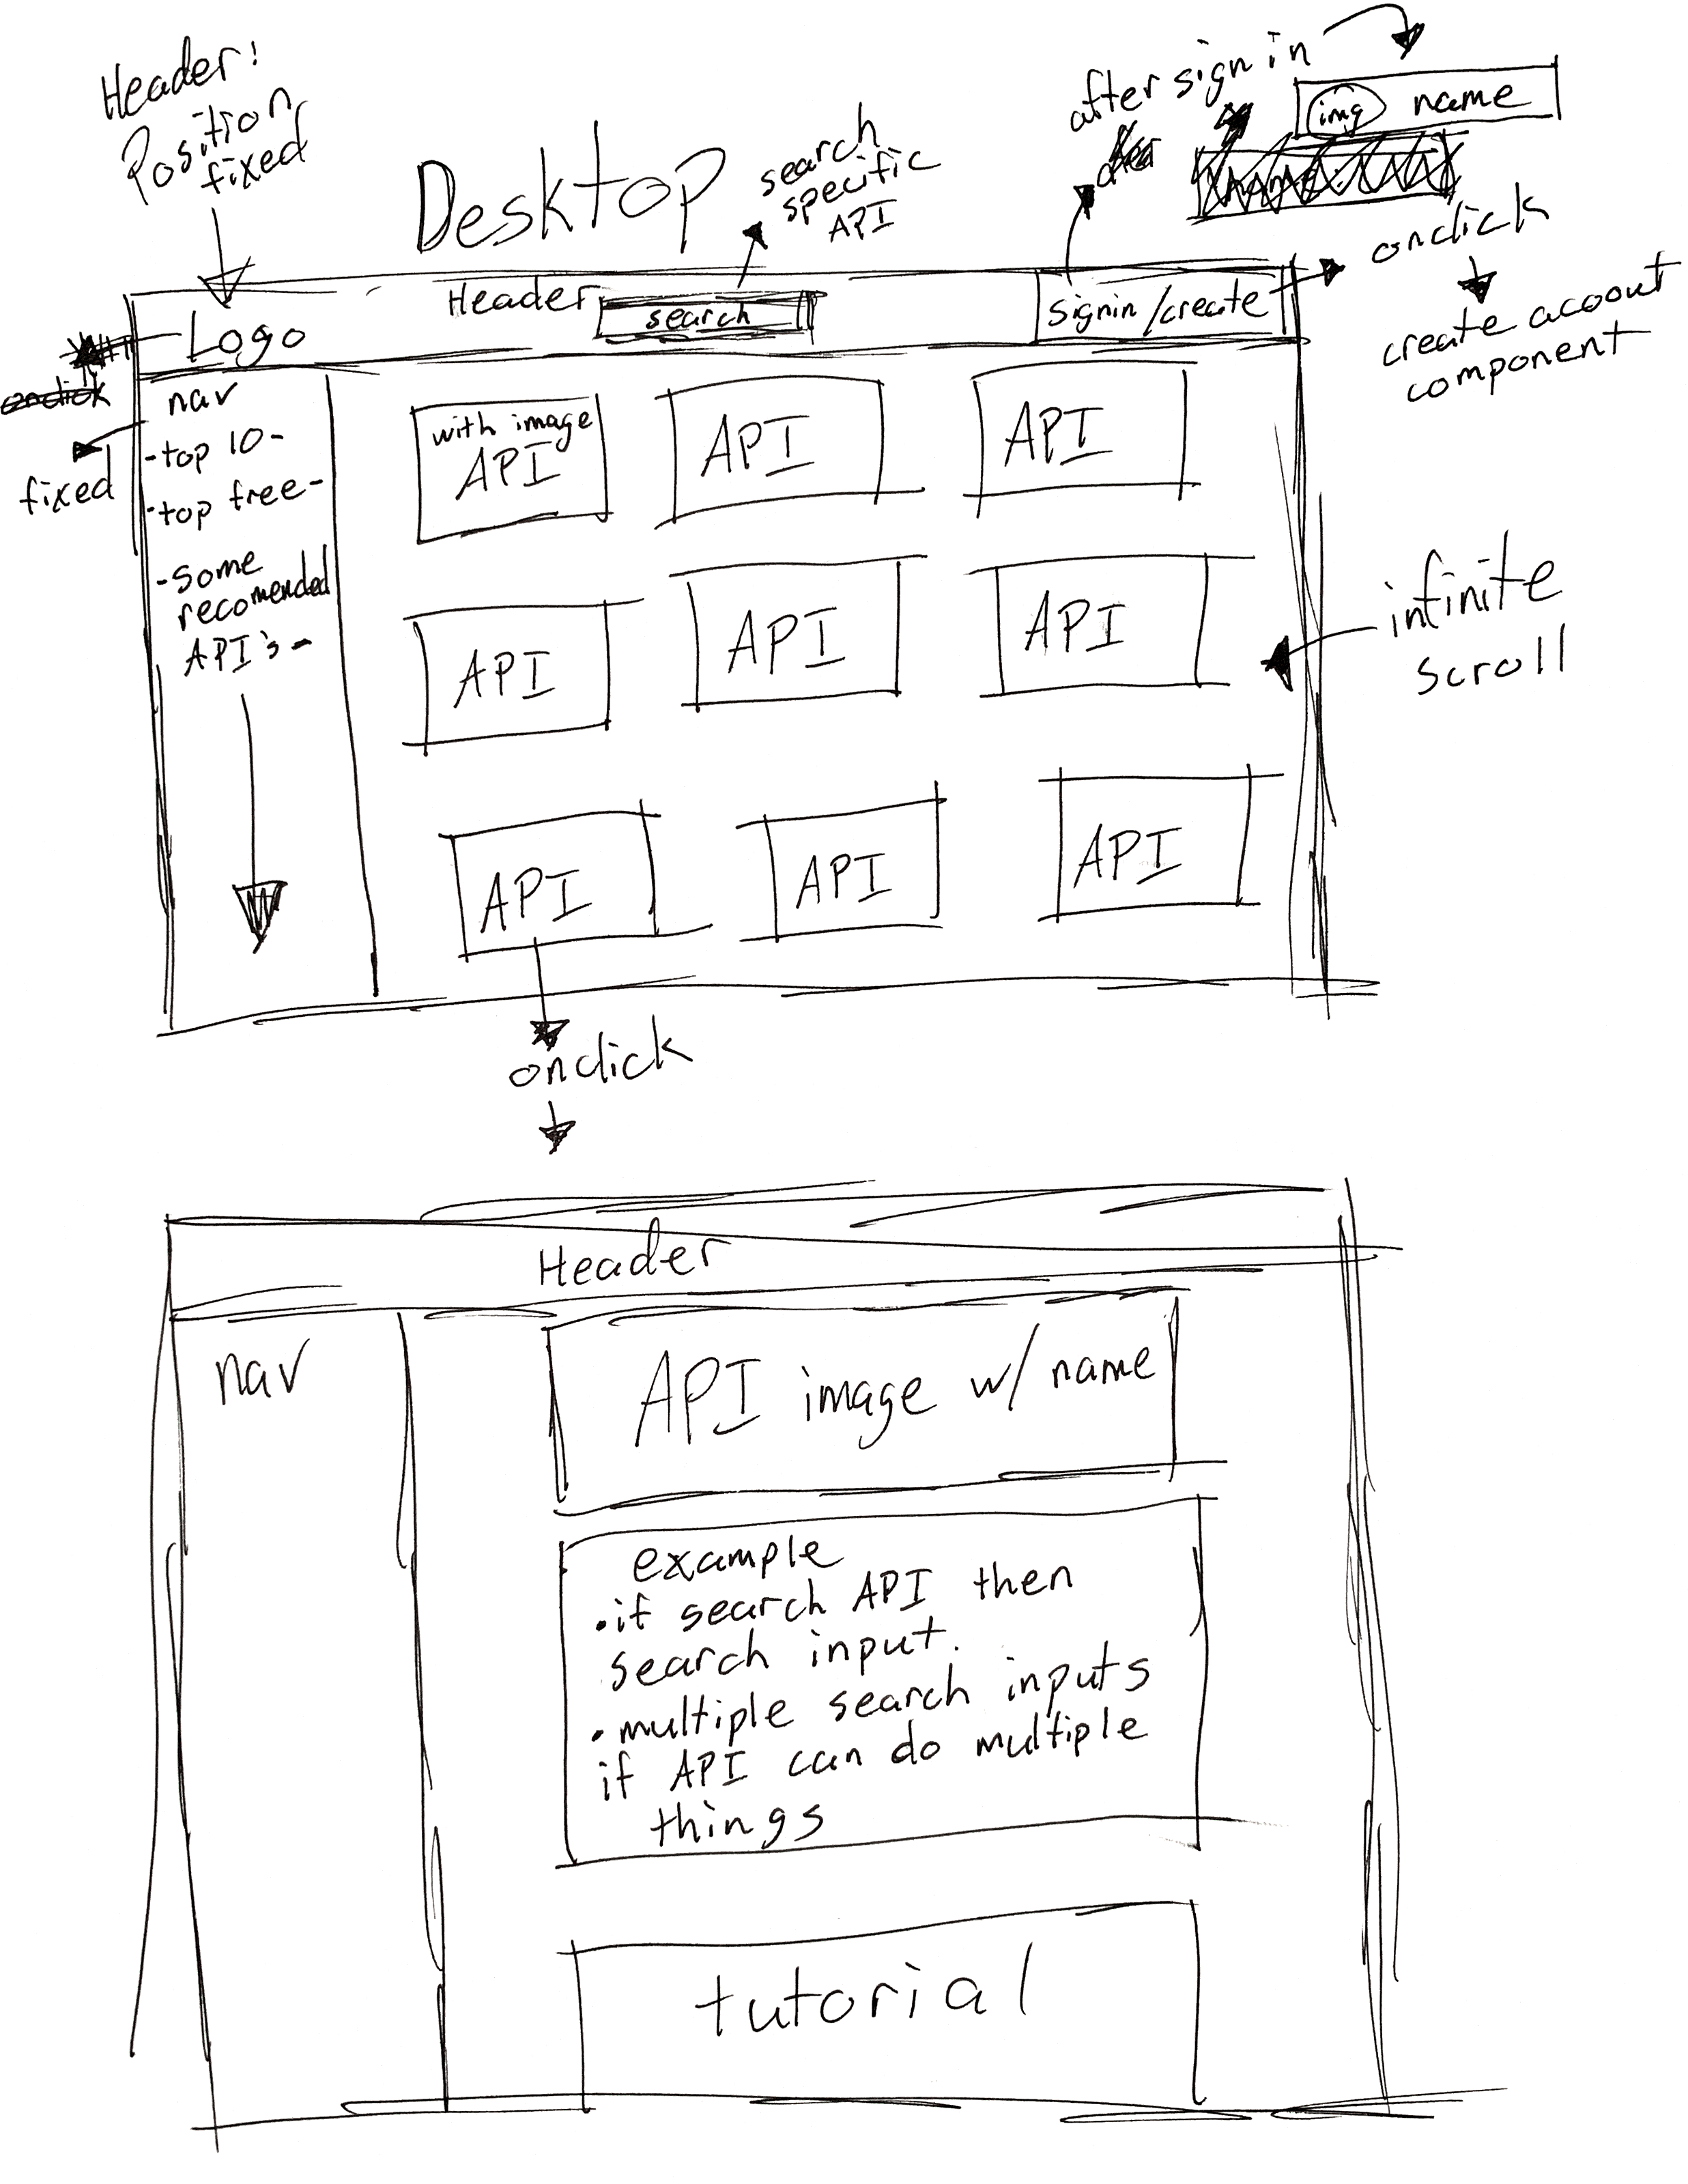 Header:
Position
fixed
Desktop
search
specific
API
after sign in
img name
onclick
create acoout
component
Header
search
signin/create
Logo
onclick
fixed
nav
-top 10-
-top free-
-some
recomended
API's-
with image
API
API
API
API
API
API
API
API
API
infinite
scroll
onclick
Header
nav
API image w/ name
example
• if search API then
search input.
• multiple search inputs
if API can do multiple
things
tutorial